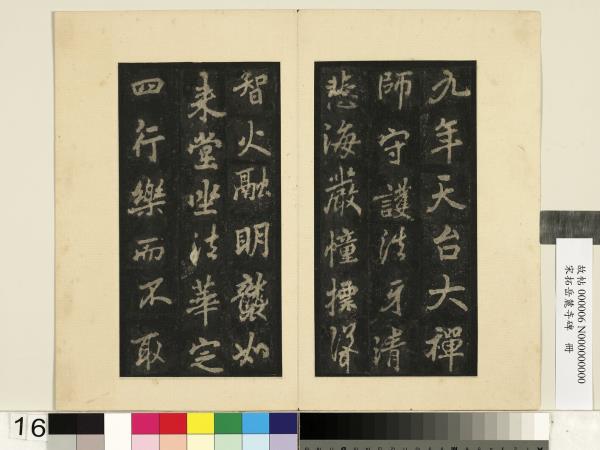 九年天台大禪
師守護法牙清
悲海嚴幢摽聳
智火融明襲如
来堂坐法華定
四行樂而不取
故帖 000006 N000000000
宋拓岳麓寺碑 冊
16